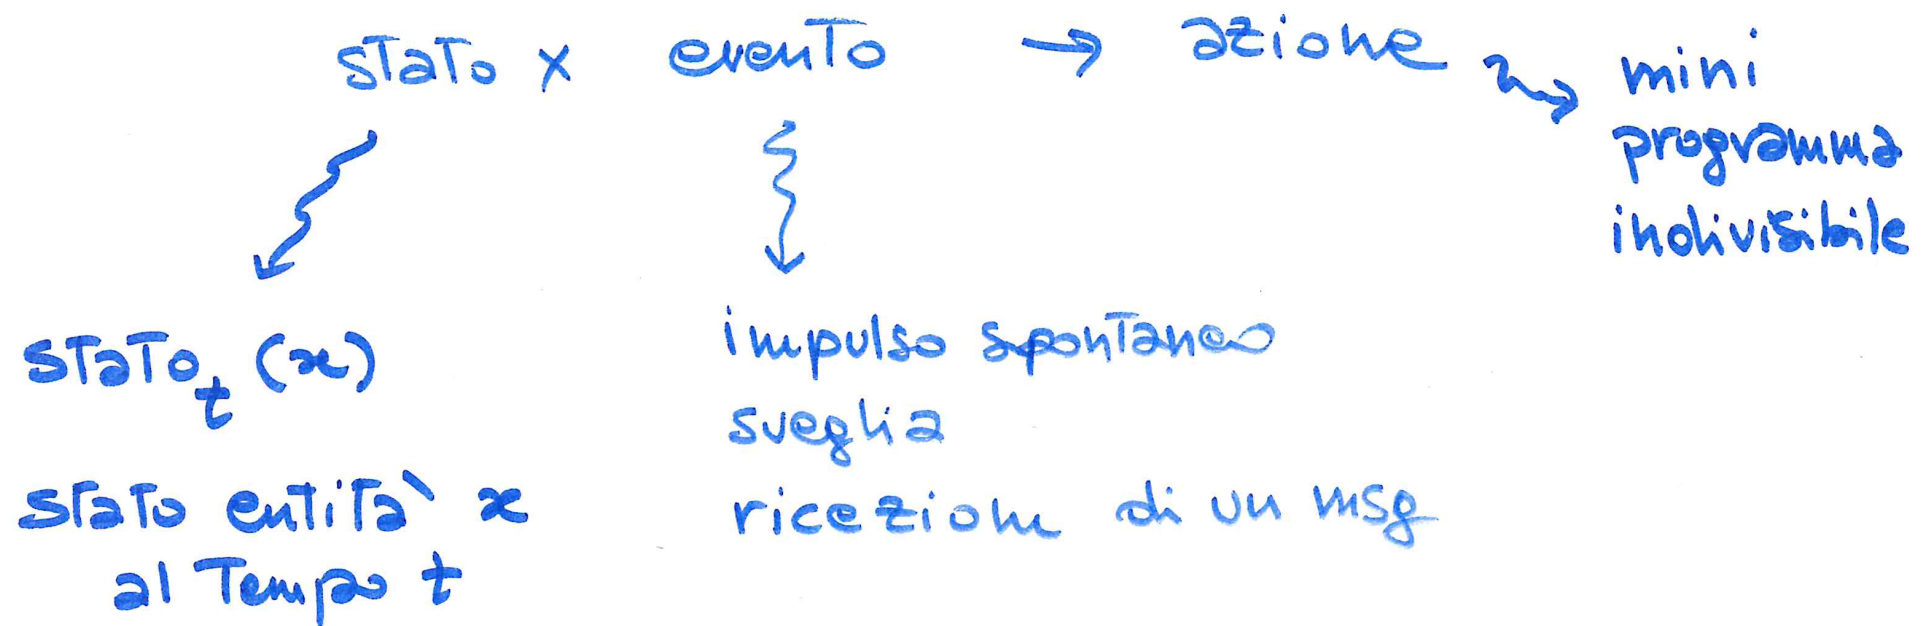 stato × evento → azione
mini
programma
indivisibile
stato_t (x)
stato entità x
al tempo t
impulso spontaneo
sveglia
ricezione di un msg